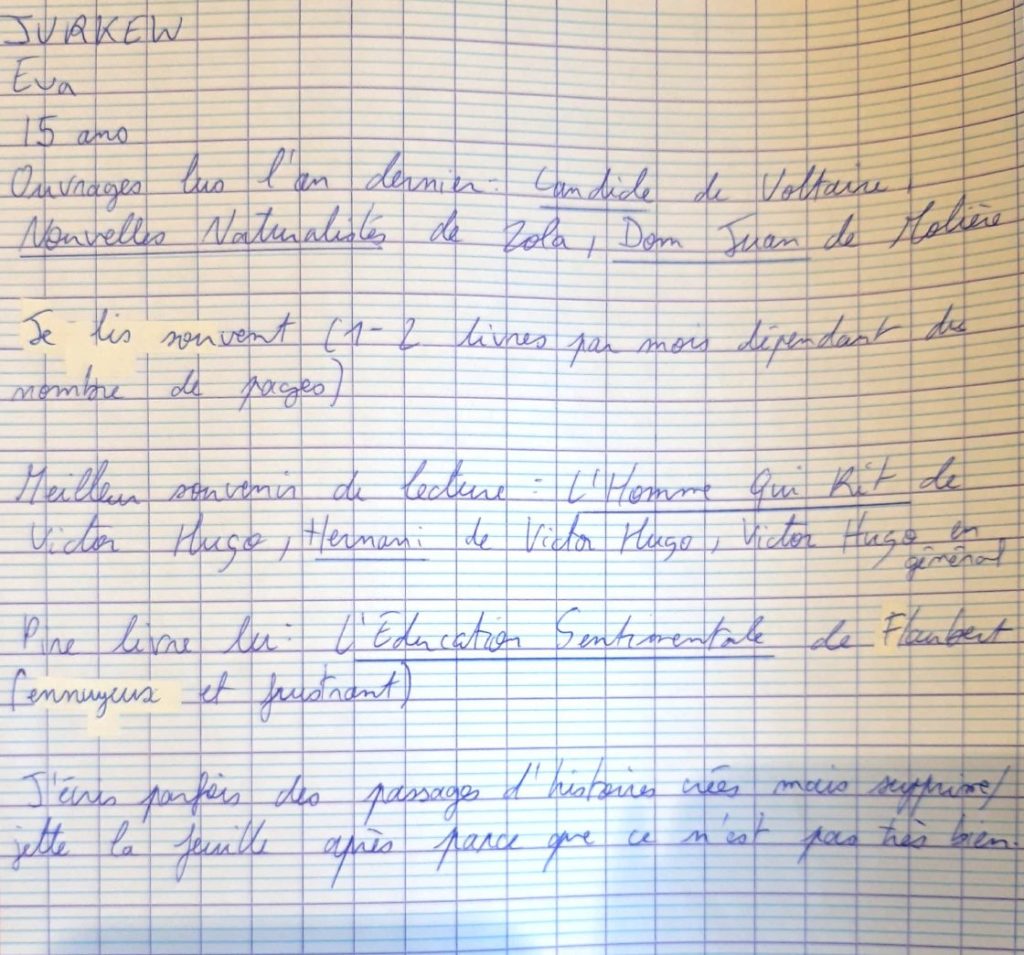 JURKEW
Eva
15 ans
Ouvrages lus l'an dernier: Candide de Voltaire,
Nouvelles Naturalistes de Zola, Dom Juan de Molière
Je lis souvent (1-2 livres par mois dépendant du
nombre de pages)
Meilleur souvenir de lecture: L'Homme Qui Rit de
Victor Hugo, Hernani de Victor Hugo, Victor Hugo en
général
Pire livre lu: L'Education Sentimentale de Flaubert
(ennuyeux et frustrant)
J'écris parfois des passages d'histoires créés mais supprime/
jette la feuille après parce que ce n'est pas très bien.